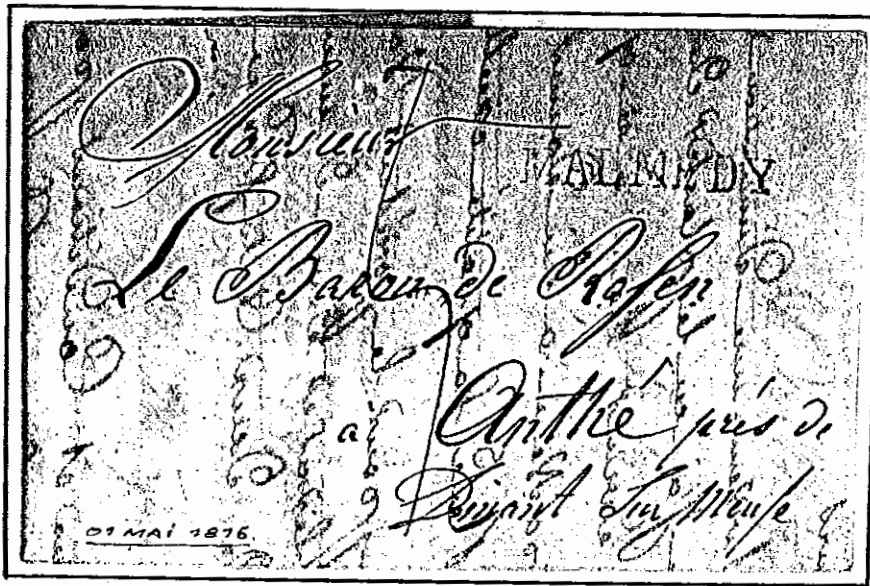 Monsieur
MALMEDY
Le Baron de Rosen
a Anthé près de
Dinant Sur Meuse
01 MAI 1816